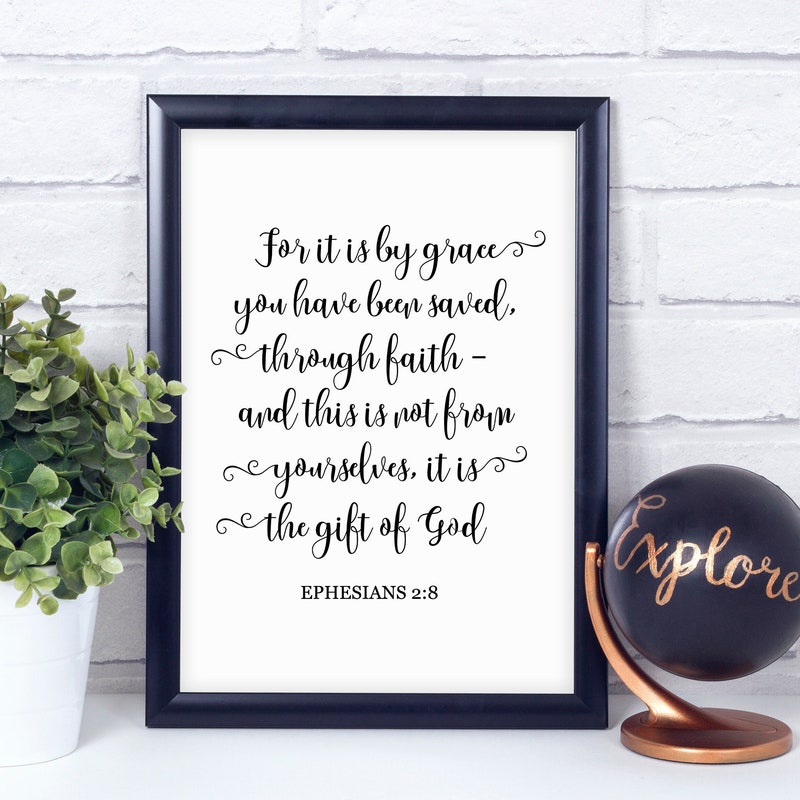 For it is by grace
you have been saved,
through faith –
and this is not from
yourselves, it is
the gift of God
EPHESIANS 2:8
Explore